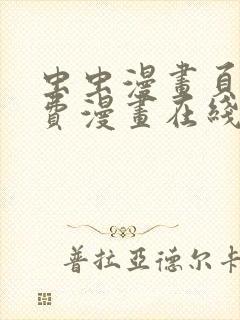 虫虫漫畫頁
費漫畫在綫
普拉亞德尔卡